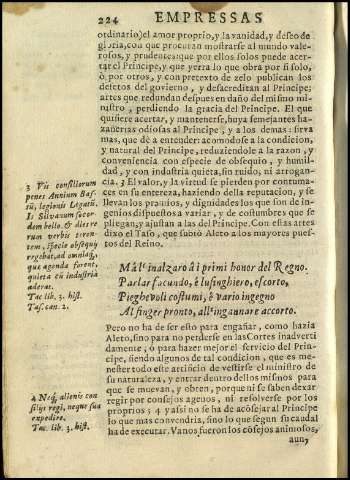 224 EMPRESSAS
ordinario) el amor proprio, y la vanidad, y deseo de
gloria, con que procuran mostrarse al mundo vale-
rosos, y prudentes: que por ellos solos puede acer-
tar el Principe, y que yerra lo que obra por si solo,
ò por otros, y con pretexto de zelo publican los
defetos del govierno, y desacreditan al Principe;
artes que redundan despues en daño del mismo mi-
nistro, perdiendo la gracia del Principe. El que
quisiere acertar, y mantenerse, huya semejantes ha-
zañerias odiosas al Principe, y a los demas: sirva
mas, que dè a entender: acomodese a la condicion,
y natural del Principe, reduziendole a la razon, y
conveniencia con especie de obsequio, y humil-
dad, y con industria quieta, sin ruido, ni arrogan-
cia, 3 El valor, y la virtud se pierden por contuma-
ces en su entereza, haziendo della reputacion, y se
llevan los premios, y dignidades los que son de in-
genios dispuestos a variar, y de costumbres que se
pliegan, y ajustan a las del Principe. Con estas artes
dixo el Tasso, que subiò Aleto a los mayores pues-
tos del Reino.
3 Vis consiliorum
penes Annium Bas-
sũ, legionis Legatũ.
Is Silvanum socor-
dem bello, & dies re-
rum verbis teren-
tem, specie obsequij
regebat, ad omniaq́,
que agenda forent,
quieta cũ industria
aderat.
Tac. lib. 3. hist.
Tas. can. 2.
Ma l' inalzaro ài primi honor del Regno.
Parlar facundo, è lusinghiero, escorto,
Pieghevoli costumi, è vario ingegno
Al finger pronto, all' ingannare accorto.
Pero no ha de ser esto para engañar, como hazia
Aleto, sino para no perderse en las Cortes inadverti
damente, ó para hazer mejor el servicio del Prin-
cipe, siendo algunos de tal condicion, que es me-
nester todo este artificio de vestirse el ministro de
su naturaleza, y entrar dentro dellos mismos para
que se muevan, y obren, porque ni se saben dexar
regir por consejos agenos, ni resolverse por los
proprios; 4 y asi no se ha de acõsejar al Principe
lo que mas convendria, sino lo que segun su caudal
ha de executar. Vanos fueron los cõsejos animosos,
4 Neq́, alienis con
silijs regi, neque sua
expedire.
Tac. lib. 3. hist.
aun,